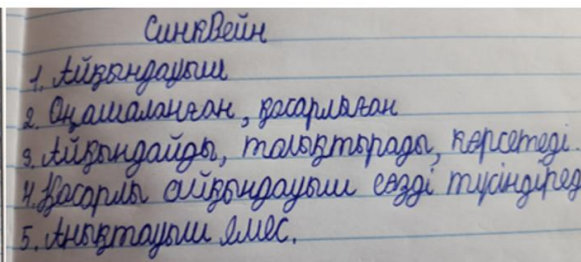 Синквейн
1. Айқындауыш
2. Оңашаланған, қосарлыған
3. Айқындайды, толықтырады, көрсетеді.
4. Қосарлы айқындауыш сөзді түсіндіред
5. Анықтауыш емес.